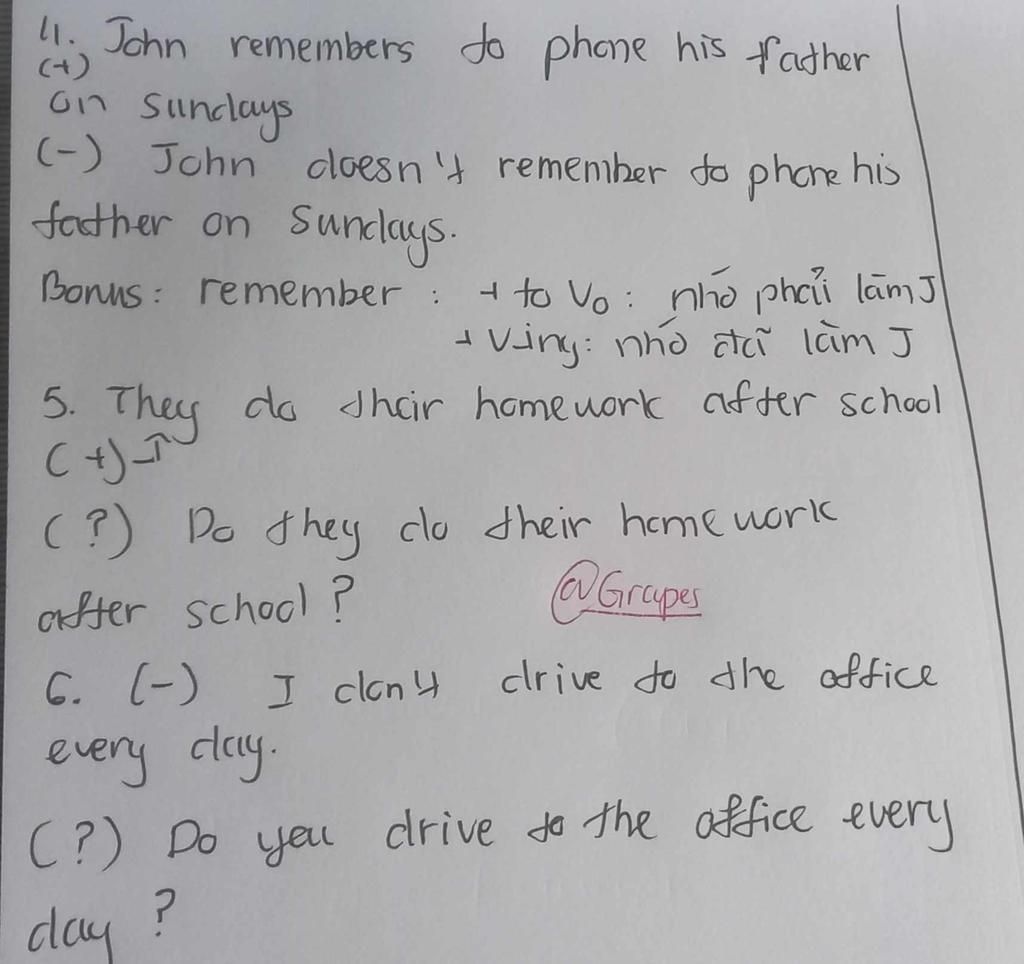 4. John remembers to phone his father
(+)
on Sundays
(-) John doesn't remember to phone his
father on Sundays.
Bonus: remember: + to V₀: nhớ phải làm J
+ Ving: nhớ đã làm J
5. They do their homework after school
(+)
(?) Do they do their homework
after school?
@Grapes
6. (-) I don't drive to the office
every day.
(?) Do you drive to the office every
day?